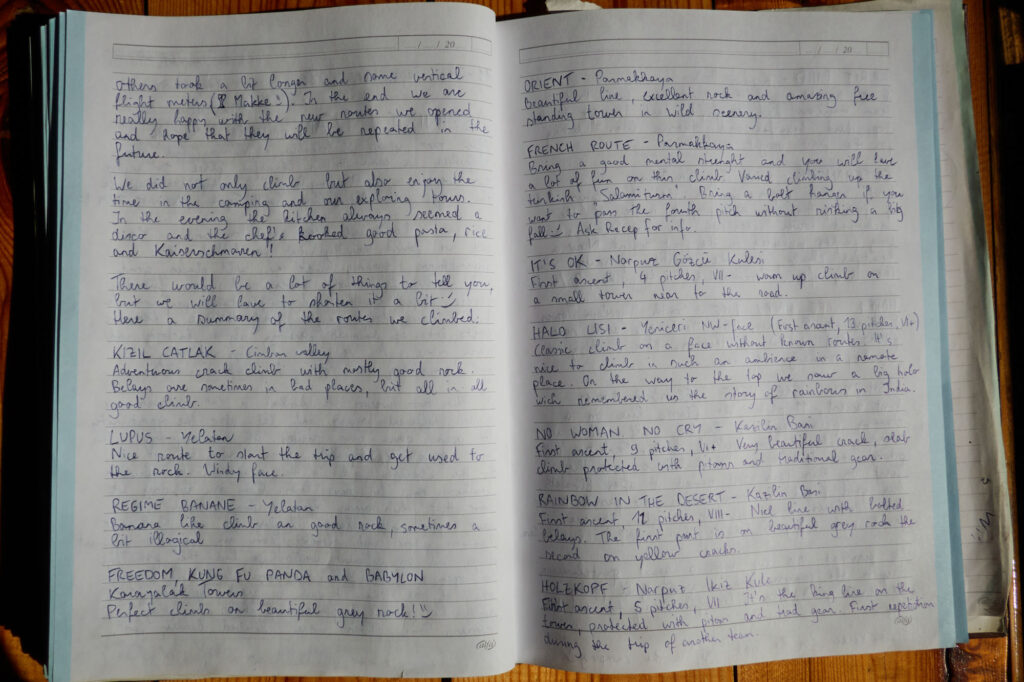 / / 20
others took a bit longer and some vertical
flight meters ( Makke ). In the end we are
really happy with the new routes we opened
and hope that they will be repeated in the
future.
We did not only climb but also enjoy the
time in the camping and our exploring tours.
In the evening the kitchen always seemed a
disco and the chef's cooked good pasta, rice
and Kaiserschmarren!
There would be a lot of things to tell you,
but we will have to shorten it a bit
Here a summary of the routes we climbed:
KIZIL CATLAK - Cimbar valley
Adventurous crack climb with mostly good rock.
Belays are sometimes in bad places, but all in all
good climb.
LUPUS - Yelatan
Nice route to start the trip and get used to
the rock. Windy face.
REGIME BANANE - Yelatan
Banana like climb on good rock, sometimes a
bit illogical
FREEDOM, KUNG FU PANDA and BABYLON
Karayalak Towers
Perfect climbs on beautiful grey rock!
/ / 20
ORIENT - Parmakkaya
Beautiful line, excellent rock and amazing free
standing tower in wild scenery.
FRENCH ROUTE - Parmakkaya
Bring a good mental strenght and you will have
a lot of fun on this climb. Varied climbing up the
turkish "Salamiturm". Bring a bolt hanger if you
want to pass the fourth pitch without risking a big
fall Ask Recep for info.
IT'S OK - Narpuz Gözcü Kulesi
First ascent, 4 pitches, VII- warm up climb on
a small tower near to the road.
HALO LISI - Yeniceri NW-face (First ascent, 13 pitches, VI+)
Classic climb on a face without known routes. It's
nice to climb in such an ambience in a remote
place. On the way to the top we saw a big halo
wich remembered us the story of rainbows in India.
NO WOMAN NO CRY - Kazilin Basi
First ascent, 9 pitches, VI+ Very beautiful crack, slab
climb protected with pitons and traditional gear.
RAINBOW IN THE DESERT - Kazilin Basi
First ascent, pitches, VIII- Nice line with bolted
belays. The first part is on beautiful grey rock the
second on yellow cracks.
HOLZKOPF - Narpuz Ikiz Kule
First ascent, 5 pitches, VII It's the king line on the
tower, protected with piton and trad gear. First repetition
during the trip of another team.